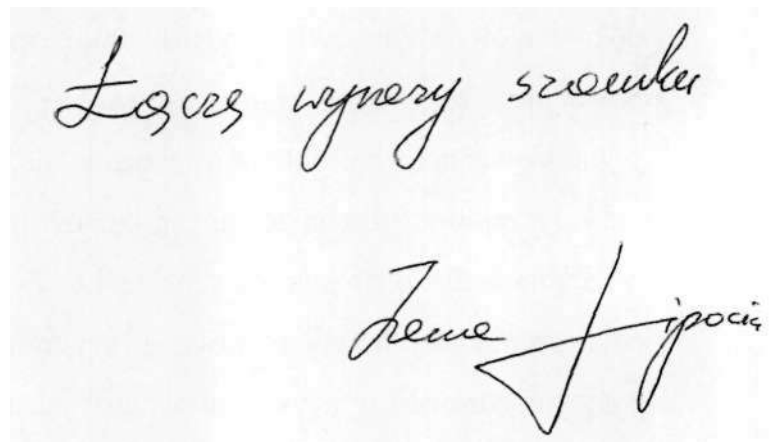 Łączę wyrazy szacunku
Irena Lipocią